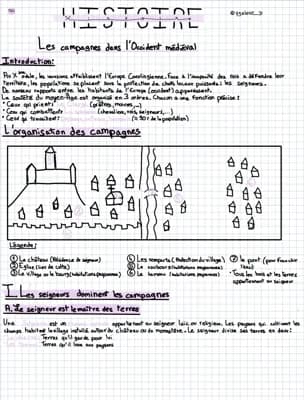 HISTOIRE
Les campagnes dans l'Occident médiéval
Introduction:
Au X° siècle, les invasions affaiblissent l'Europe Carolingienne. Face à l'incapacité des rois à défendre leur
territoire, les populations se placent sous la protection de chefs locaux puissants: les seigneurs.
De nouveaux rapports entre les habitants de l'Europe (occident) apparaissent.
La société du moyen-âge est organisé en 3 ordres. Chacun a une fonction précise:
• Ceux qui prient: (prêtres, moines,...)
• Ceux qui combattent: (chevaliers, rois, seigneurs,...)
• Ceux qui travaillent: (= 90% de la population)
L'organisation des campagnes
Légende:
① Le château (Résidence du seigneur)
② Église (Lieu de culte)
③ Le village ou le bourg (habitations paysannes)
④ Les remparts (Protection du village)
⑤ Le
⑥ Le hameau (habitations paysannes)
⑦ le pont (pour franchir
l'eau)
• Tous les bois et les terres
appartiennent au seigneur
I. Les seigneurs dominent les campagnes
A. Le seigneur est le maître des terres
Une est un appartenant au seigneur laïc ou religieux. Les paysans qui cultivent les
champs habitent le village installé autour du château ou du monastère. Le seigneur divise ses terres en deux:
Terres qu'il garde pour lui
Terres qu'il loue aux paysans